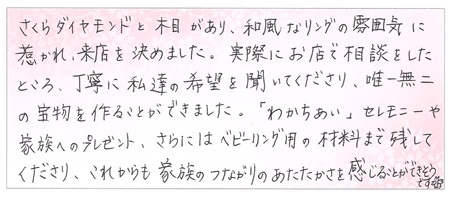 さくらダイヤモンドと木目があり、和風なリングの雰囲気に
惹かれ、来店を決めました。実際にお店で相談をした
ところ、丁寧に私達の希望を聞いてくださり、唯一無二
の宝物を作ることができました。「わかちあい」セレモニーや
家族へのプレゼント、さらにはベビーリング用の材料まで残して
くださり、これからも家族のつながりのあたたかさを感じることができそう
です